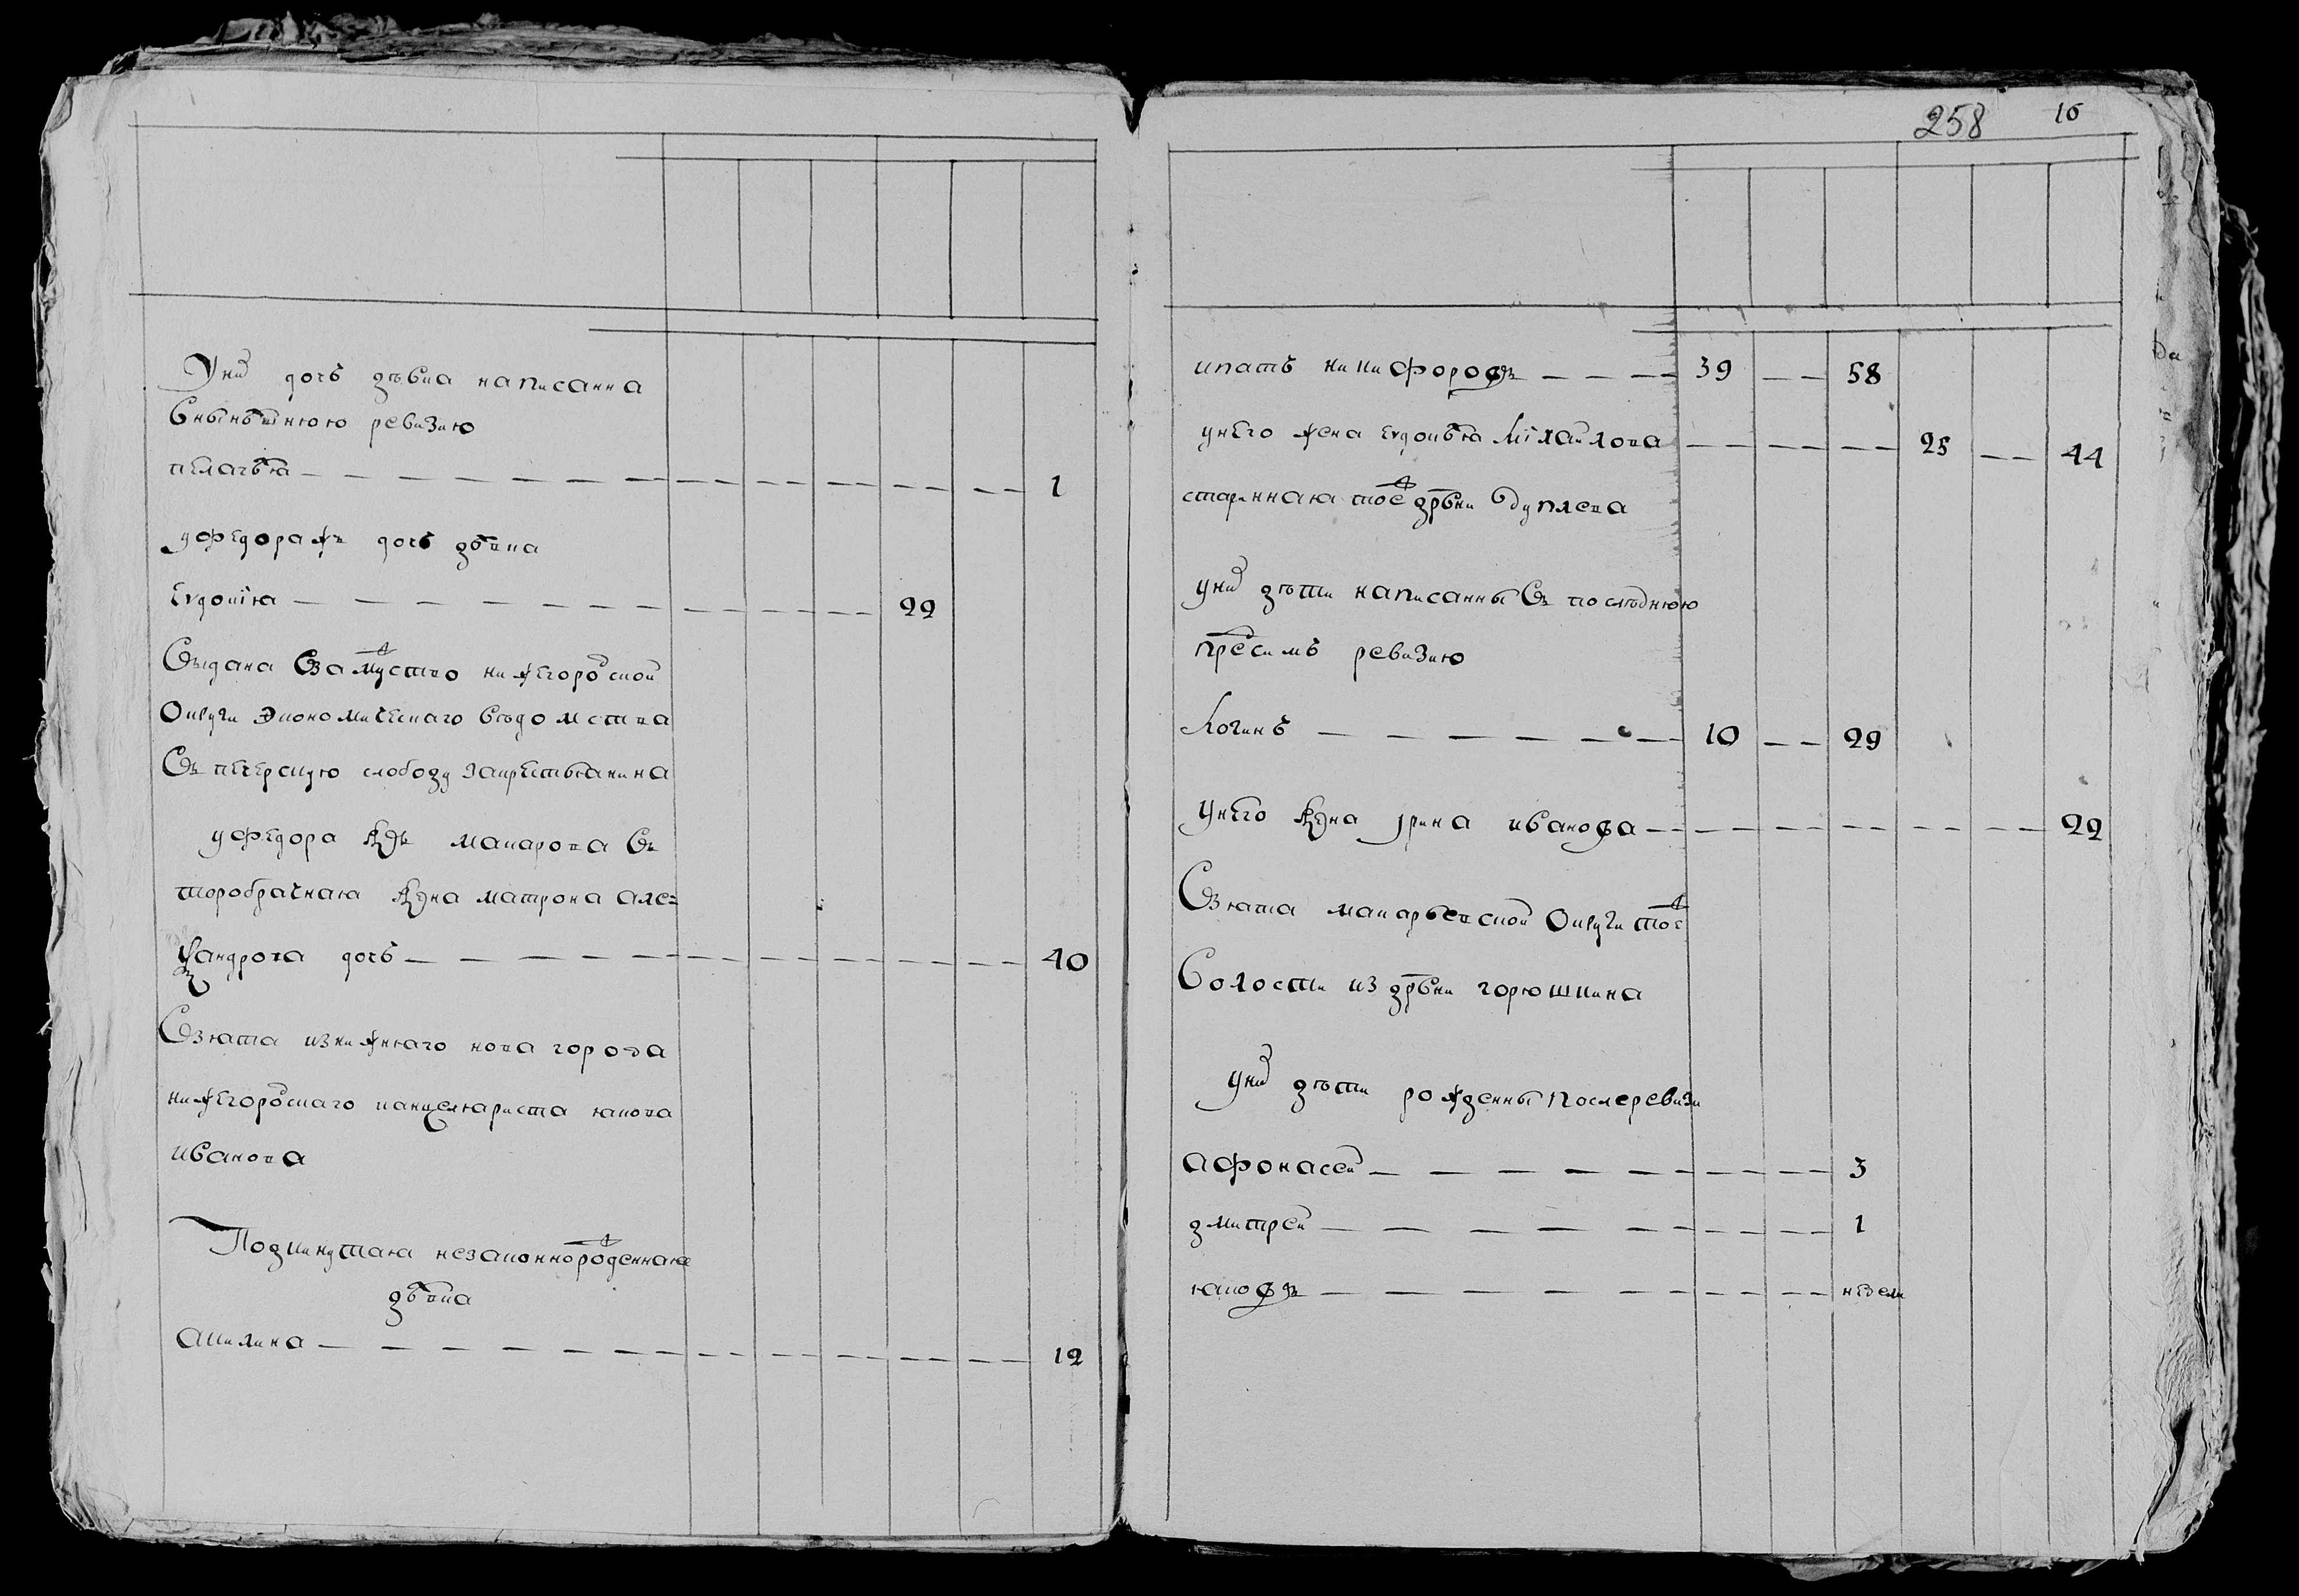 У них дочь дѣвка написанна
в нынѣшнюю ревизию
пелагѣя — 1
у федора ж дочь дѣвка
Evдокия — 22
Выдана в замуство нижегородской
округи экономическаго вѣдомства
в печерскую слободу за крестьянина
у федора жъ макарова в
торобрачная жена матрона алек
ѯандрова дочь — 40
Взята из нижняго нова города
нижегородскаго канцеляриста якова
иванова
Подкинутая незаконнорожденная
дѣвка
акилина — 12
258 16
ипатъ никифоровъ — 39 — 58
у него жена evдокѣя міхайлова — 25 — 44
старинная тоеж дрвни
у них дѣти написанны въ последнюю
пред симъ ревизию
Логинъ — 10 — 29
у него жена ирина иванова — 22
Взята макарьевской округи тоеж
волости из дрвни горюшкина
у них дѣти рожденны после ревизи
афонасей — 3
дмитрей — 1
яковъ — недели